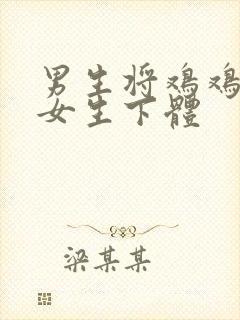 男生将鸡鸡
女生下體
梁某某